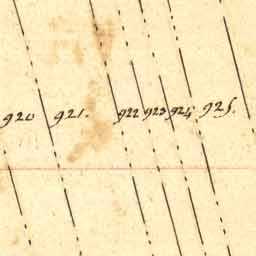 920 921. 922 923 924 925.